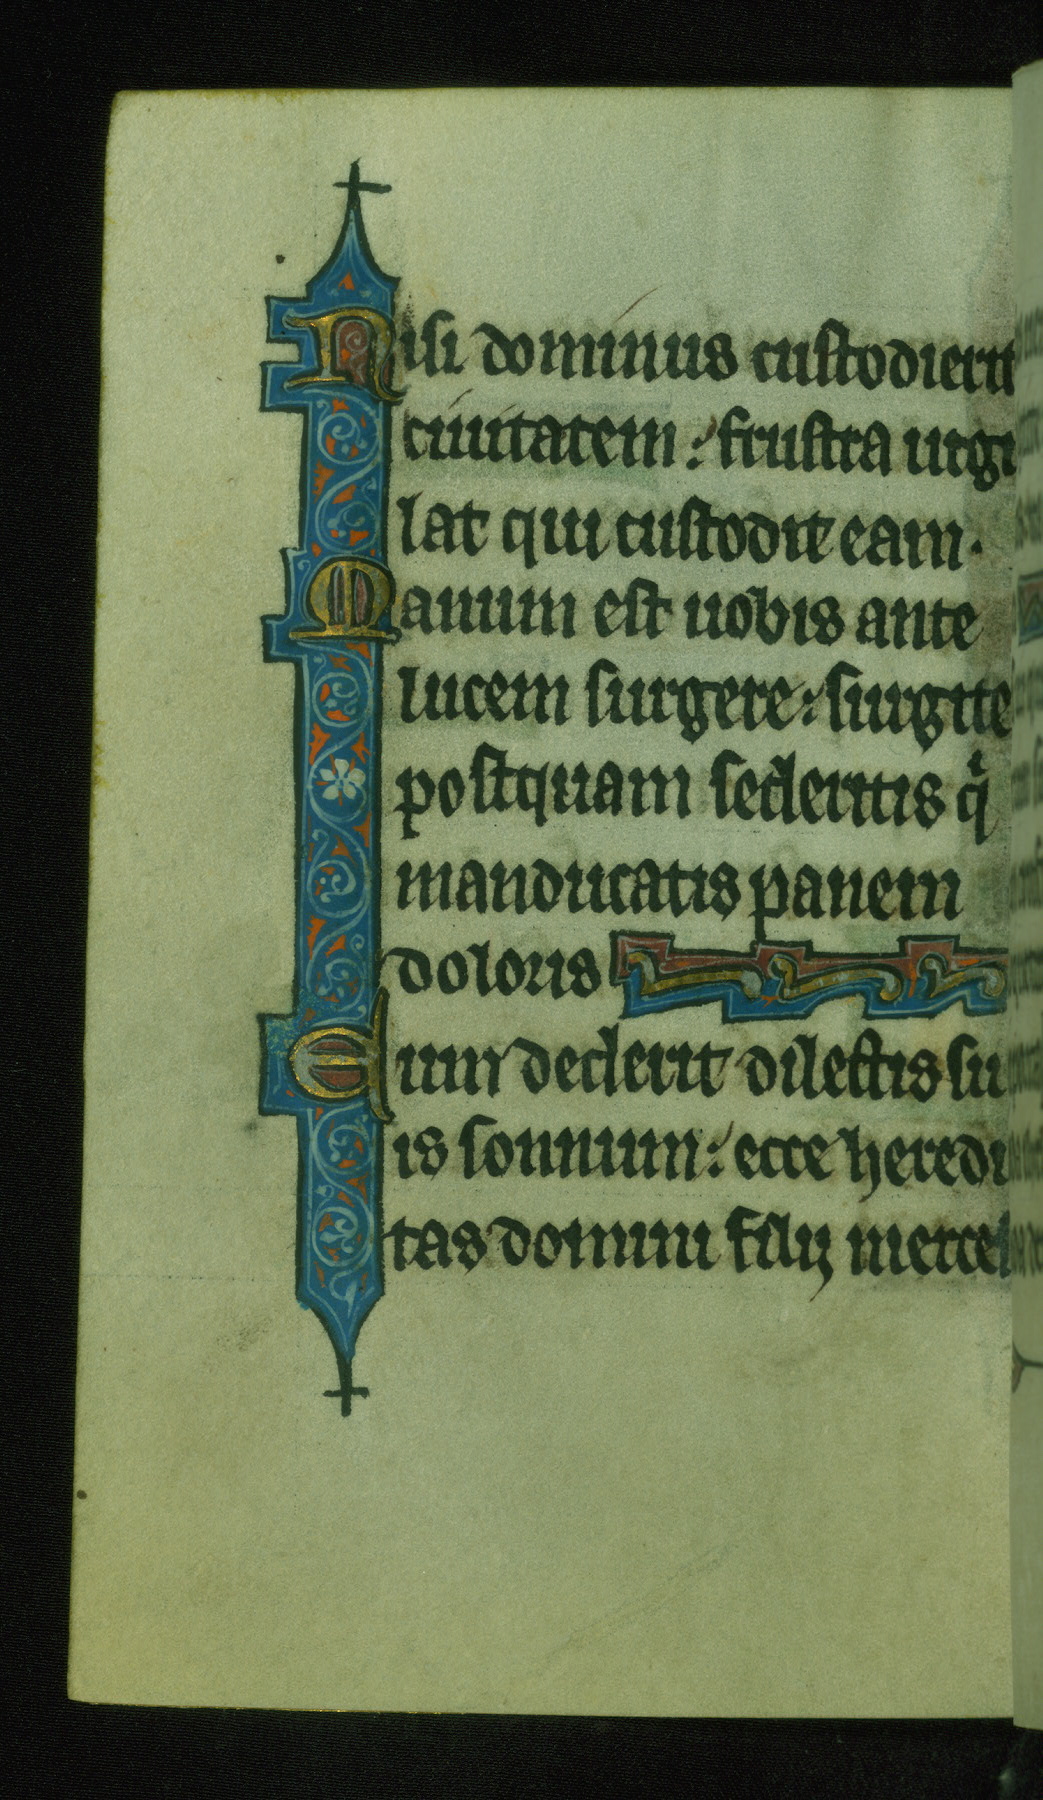 Nisi dominus custodierit
ciuitatem: frustra uigi
lat qui custodit eam.
Vanum est uobis ante
lucem surgere: surgite
postquam sederitis qi
manducatis panem
doloris
Cum dederit dilectis su
is sonnum: ecce heredi
tas domini filij merces